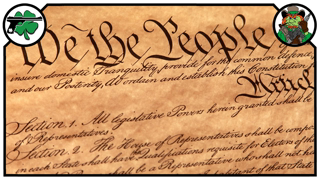 We the People
insure domestic Tranquility, provide for the common defence,
and our Posterity, do ordain and establish this Constitution
Article
Section 1. All legislative Powers herein granted shall be
of Representatives.
Section 2. The House of Representatives shall be compo
in each State shall have the Qualifications requisite for Electors of the
shall be a Representative who shall not ha
Inhabitant of that State